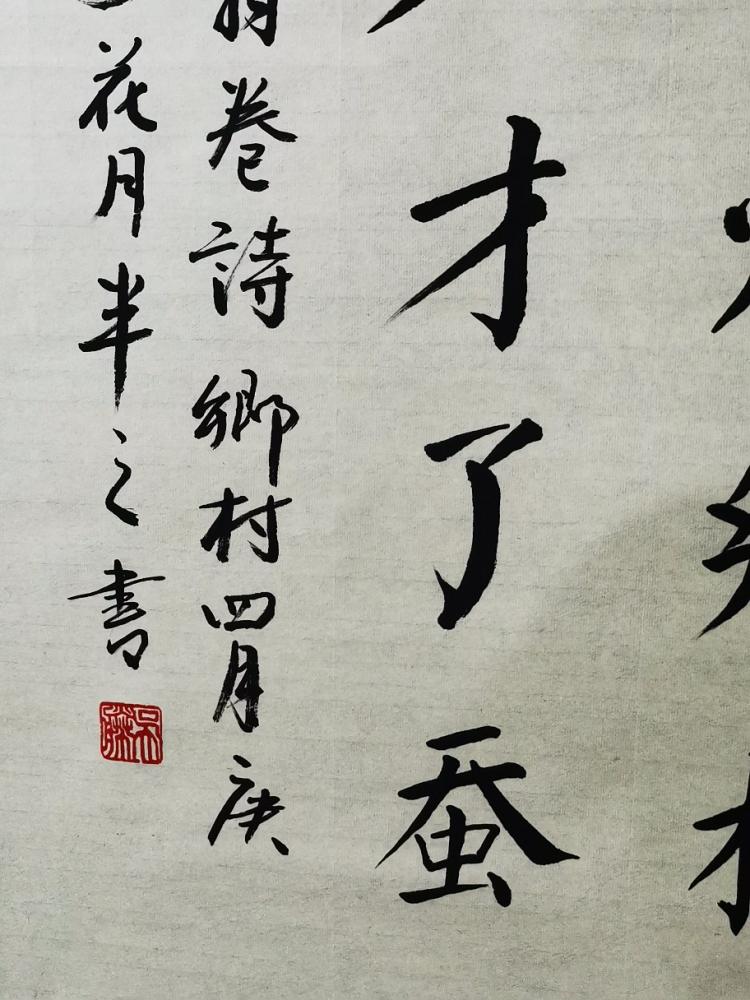 才了蚕
卷詩鄉村四月庚
花月半之書